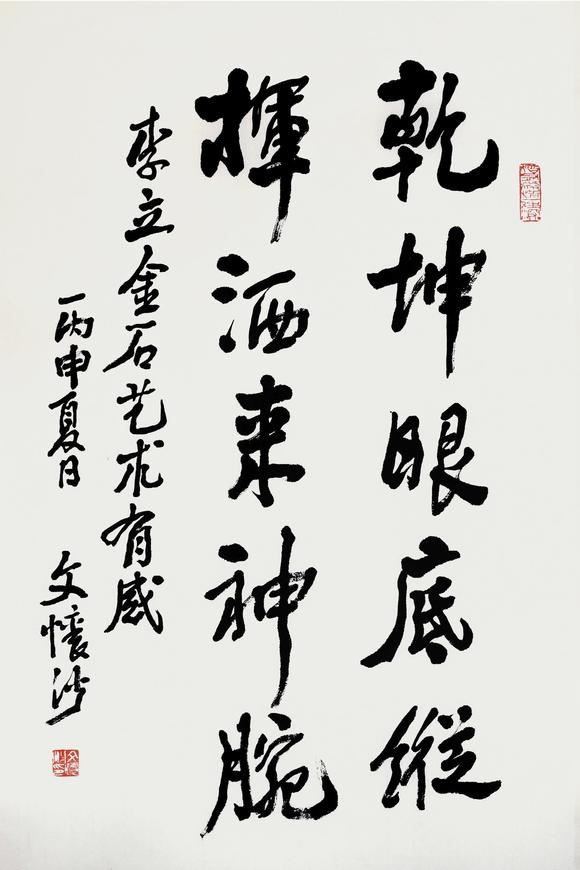 乾坤眼底縱
揮洒来神腕
李立金石艺术有感
丙申夏日
文懷沙